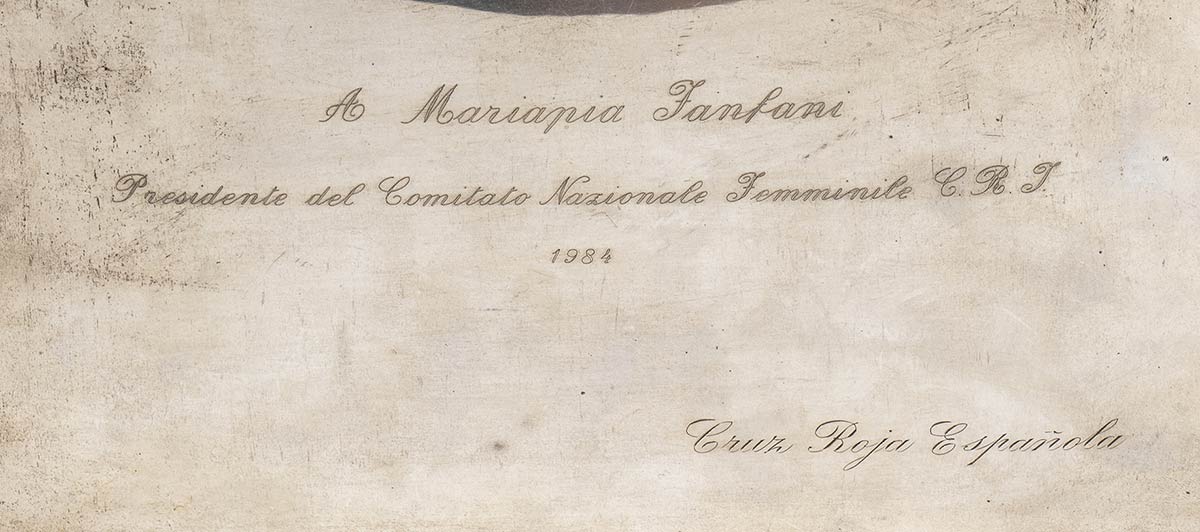 A Mariapia Fanfani
Presidente del Comitato Nazionale Femminile C. R. I.
1984
Cruz Roja Española